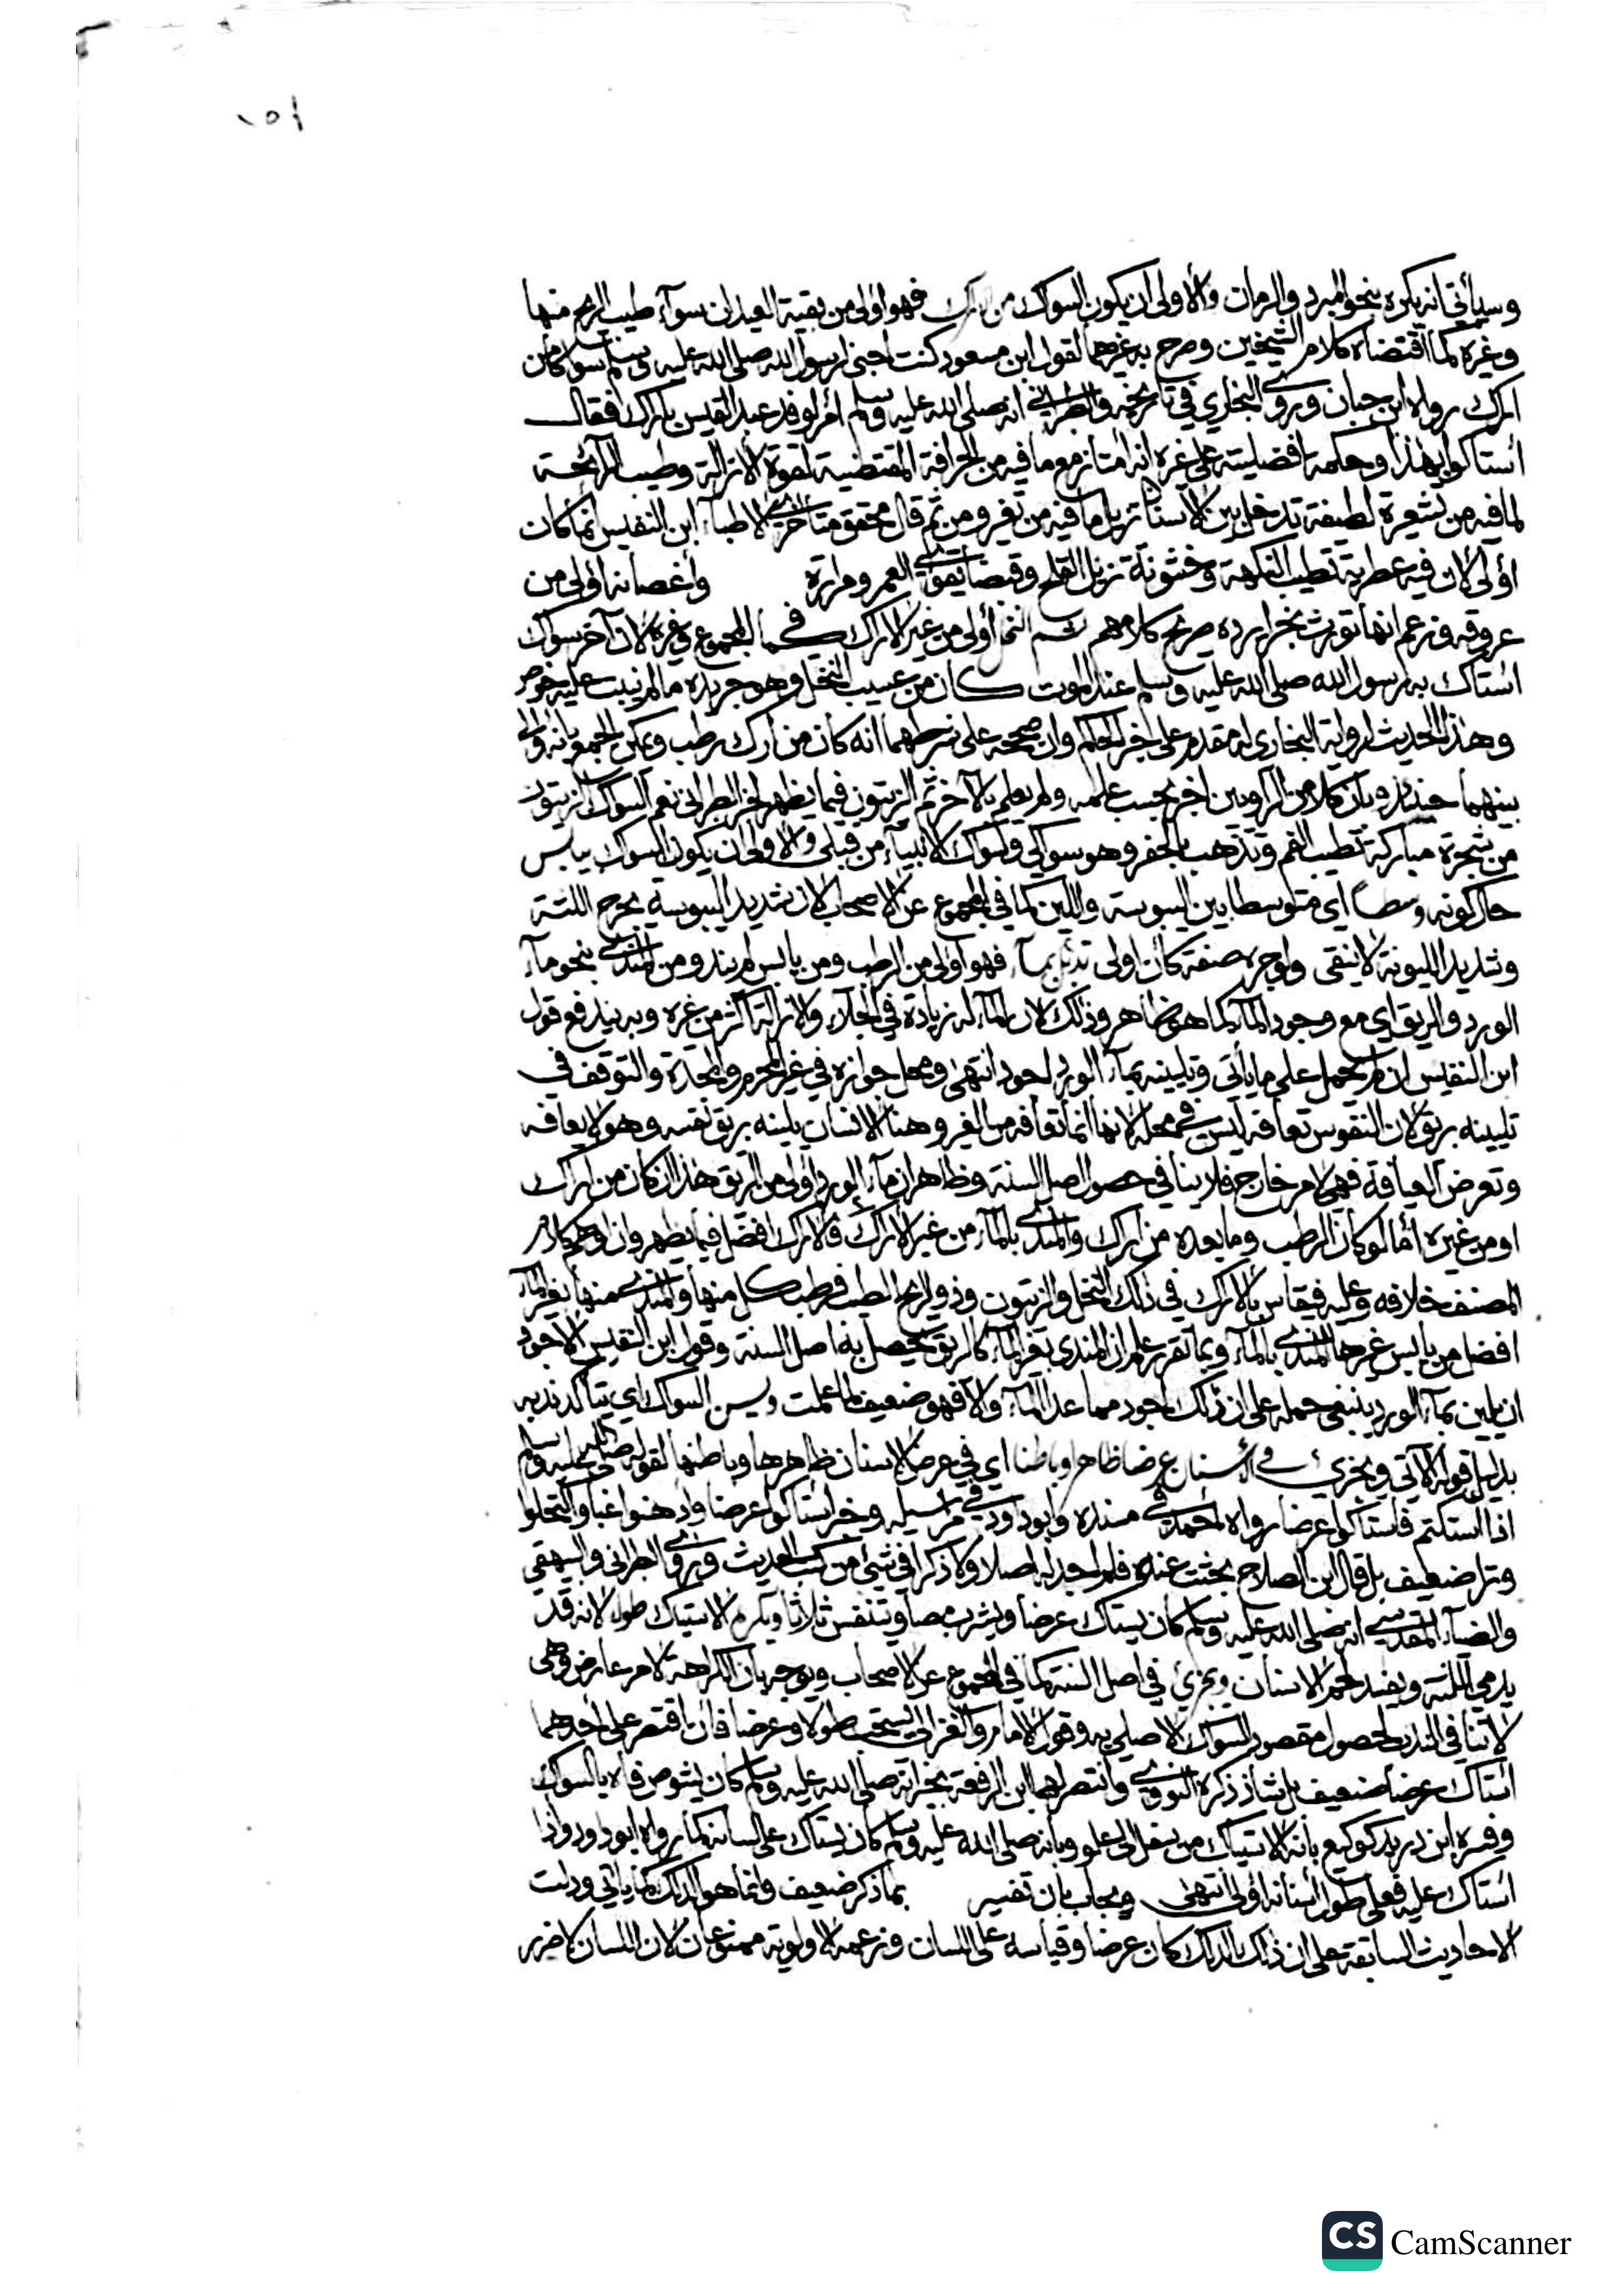 ١٥١
وسيأتي انه يكره بنحو المبرد والرمان والأولى ان يكون السواك من اراك فهو اولى من بقية العيدان سوآء طيب الريح منها
وغيره كما اقتضاه كلام الشيخين وصرح به غيرهما لقول ابن مسعود كنت اجتني لرسول الله صلى الله عليه وسلم سواكا من
اراك رواه ابن حبان وروى البخاري في تاريخه والطبراني انه صلى الله عليه وسلم امر لوفد عبد القيس باراك فقال
استاكوا بهذا وحكمة افضليته على غيره انه امتاز مع ما فيه من الحرافة المقتضية لقوة الازالة وطيب الرآئحة
لما فيه من شعيرة لطيفة تدخل بين الاسنان تزيل ما فيه من تغير ومن ثم قال محقق متأخري الاطبآء ابن النفيس انما كان
اولى لان فيه عطرية تطيب النكهة وخشونة تزيل القلح وقبضا يقوي العمور ومرارة واغصانه اولى من
عروقه وزعم انها تورث بخرا يرده صريح كلامهم ثم النخل اولى من غير الاراك كما في المجموع وغيره لان آخر سواك
استاك به رسول الله صلى الله عليه وسلم عند الموت كان من عسيب النخل وهو جريده ما لم ينبت عليه خوص
وهذا الحديث لرواية البخاري له مقدم على خبر الحاكم وان صححه على شرطهما انه كان من اراك رطب ويمكن الجمع بانه والى
بينهما حينئذ وبان كلا من الراويين اخبر بحسب علمه ولم يعلم بالآخر ثم الزيتون فيما يظهر لخبر الطبراني نعم السواك الزيتون
من شجرة مباركة تطيب الفم وتذهب بالحفر وهو سواكي وسواك الانبيآء من قبلي والاولى ان يكون السواك بيابس
حال كونه وسطا اي متوسطا بين اليبوسة واللين كما في المجموع عن الاصحاب لان شديد اليبوسة يجرح اللثة
وشديد الليونة لا ينقي واوجره صفة كان اولى ندي بمآء فهو اولى من الرطب ومن يابس لم يند ومن المندى بنحو مآء
الورد والريق اي مع وجود المآء كما هو ظاهر وذلك لان للمآء له زيادة في الجلآء والازالة اكثر من غيره وبه يندفع قول
ابن النفيس ان لم يحمل على ما يأتي وتليينه بمآء الورد لجود انتهى ومحل جوازه في غير المحرم والمحدة والتوقف في
تليينه بريق لان النفوس تعافه ليس في محله لانها انما تعافه من الغير وهنا الانسان يلينه بريق نفسه وهو لا يعافه
وتعرض العيافة فهي لامر خارج فلا ينافي حصول اصل السنة وظاهر ان مآء الورد اولى من الريق هذا ان كان من اراك
او من غيره اما لو كان الرطب وما بعده من اراك والمندى بالمآء من غير الاراك فالاراك افضل فيما يظهر وان اوهم كلام
المصنف خلافه وعليه فيقاس بالاراك في ذلك النخل والزيتون وذو الريح الطيب فرطب كل منها والمندى منها بغير المآء
افضل من يابس غيرها المندى بالمآء وبما تقرر علم ان المندى بغير المآء كالريق يحصل به اصل السنة وقول ابن النفيس الاجود
ان يلين بمآء الورد ينبغي حمله على ان ذلك اجود مما عدا المآء والا فهو ضعيف لما علمت ويسن السواك اي يتأكد ندبه
بدليل قوله الآتي ويجزئ في الاسنان عرضا ظاهرا وباطنا اي في عرض الاسنان ظاهرها وباطنها لقوله صلى الله عليه وسلم
اذا استكتم فاستاكوا عرضا رواه احمد في مسنده وابو داود في مراسيله وخبر استاكوا عرضا وادهنوا غبا واكتحلوا
وترا ضعيف بل قال ابن الصلاح بحثت عنه فلم اجد له اصلا ولا ذكرا في شيء من كتب الحديث وروى الطبراني والبيهقي
والضيآء المقدسي انه صلى الله عليه وسلم كان يستاك عرضا ويشرب مصا ويتنفس ثلاثا ويكره الاستياك طولا لانه قد
يدمي اللثة ويفسد لحم الاسنان ويجزئ في اصل السنة كما في المجموع عن الاصحاب ويوجه بان الكراهة لامر عارض وهي
لا تنافي الندب لحصول مقصود السواك الاصلي به وقول الامام والغزالي يستحب طولا وعرضا فان اقتصر على احدهما
استاك عرضا ضعيف بل شاذ ذكره النووي وانتصر لهما ابن الرفعة بخبر انه صلى الله عليه وسلم كان يشوص فاه بالسواك
وفسره ابن دريد كوكيع بانه الاستياك من سفل الى علو وبانه صلى الله عليه وسلم كان يستاك على لسانه كما رواه ابو داود واذا
استاك عليه فعلى طول اسنانه اولى انتهى ويجاب بان تفسير بما ذكر ضعيف وانما هو الدلك كما يأتي ودلت
الاحاديث السابقة على ان ذلك الدلك كان عرضا وقياسه على اللسان وزعمه الاولوية ممنوعان لان اللسان لا ضرر
CS CamScanner